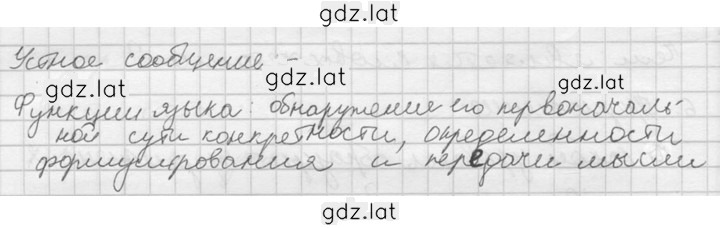 gdz.lat
Устное сообщение –
gdz.lat gdz.lat gdz.lat
Функции языка: обнаружение его первоначаль-
ной сути конкретности, определенности
формулирования и передачи мысли
gdz.lat